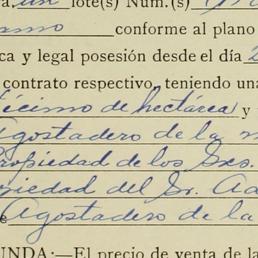 un lote(s) Núm.(s)
conforme al plano
ca y legal posesión desde el día 2
contrato respectivo, teniendo una
écimo de hectárea y
Agostadero de la m
Propiedad de los Sres.
piedad del Sr. Ad
e Agostadero de la
UNDA:—El precio de venta de la